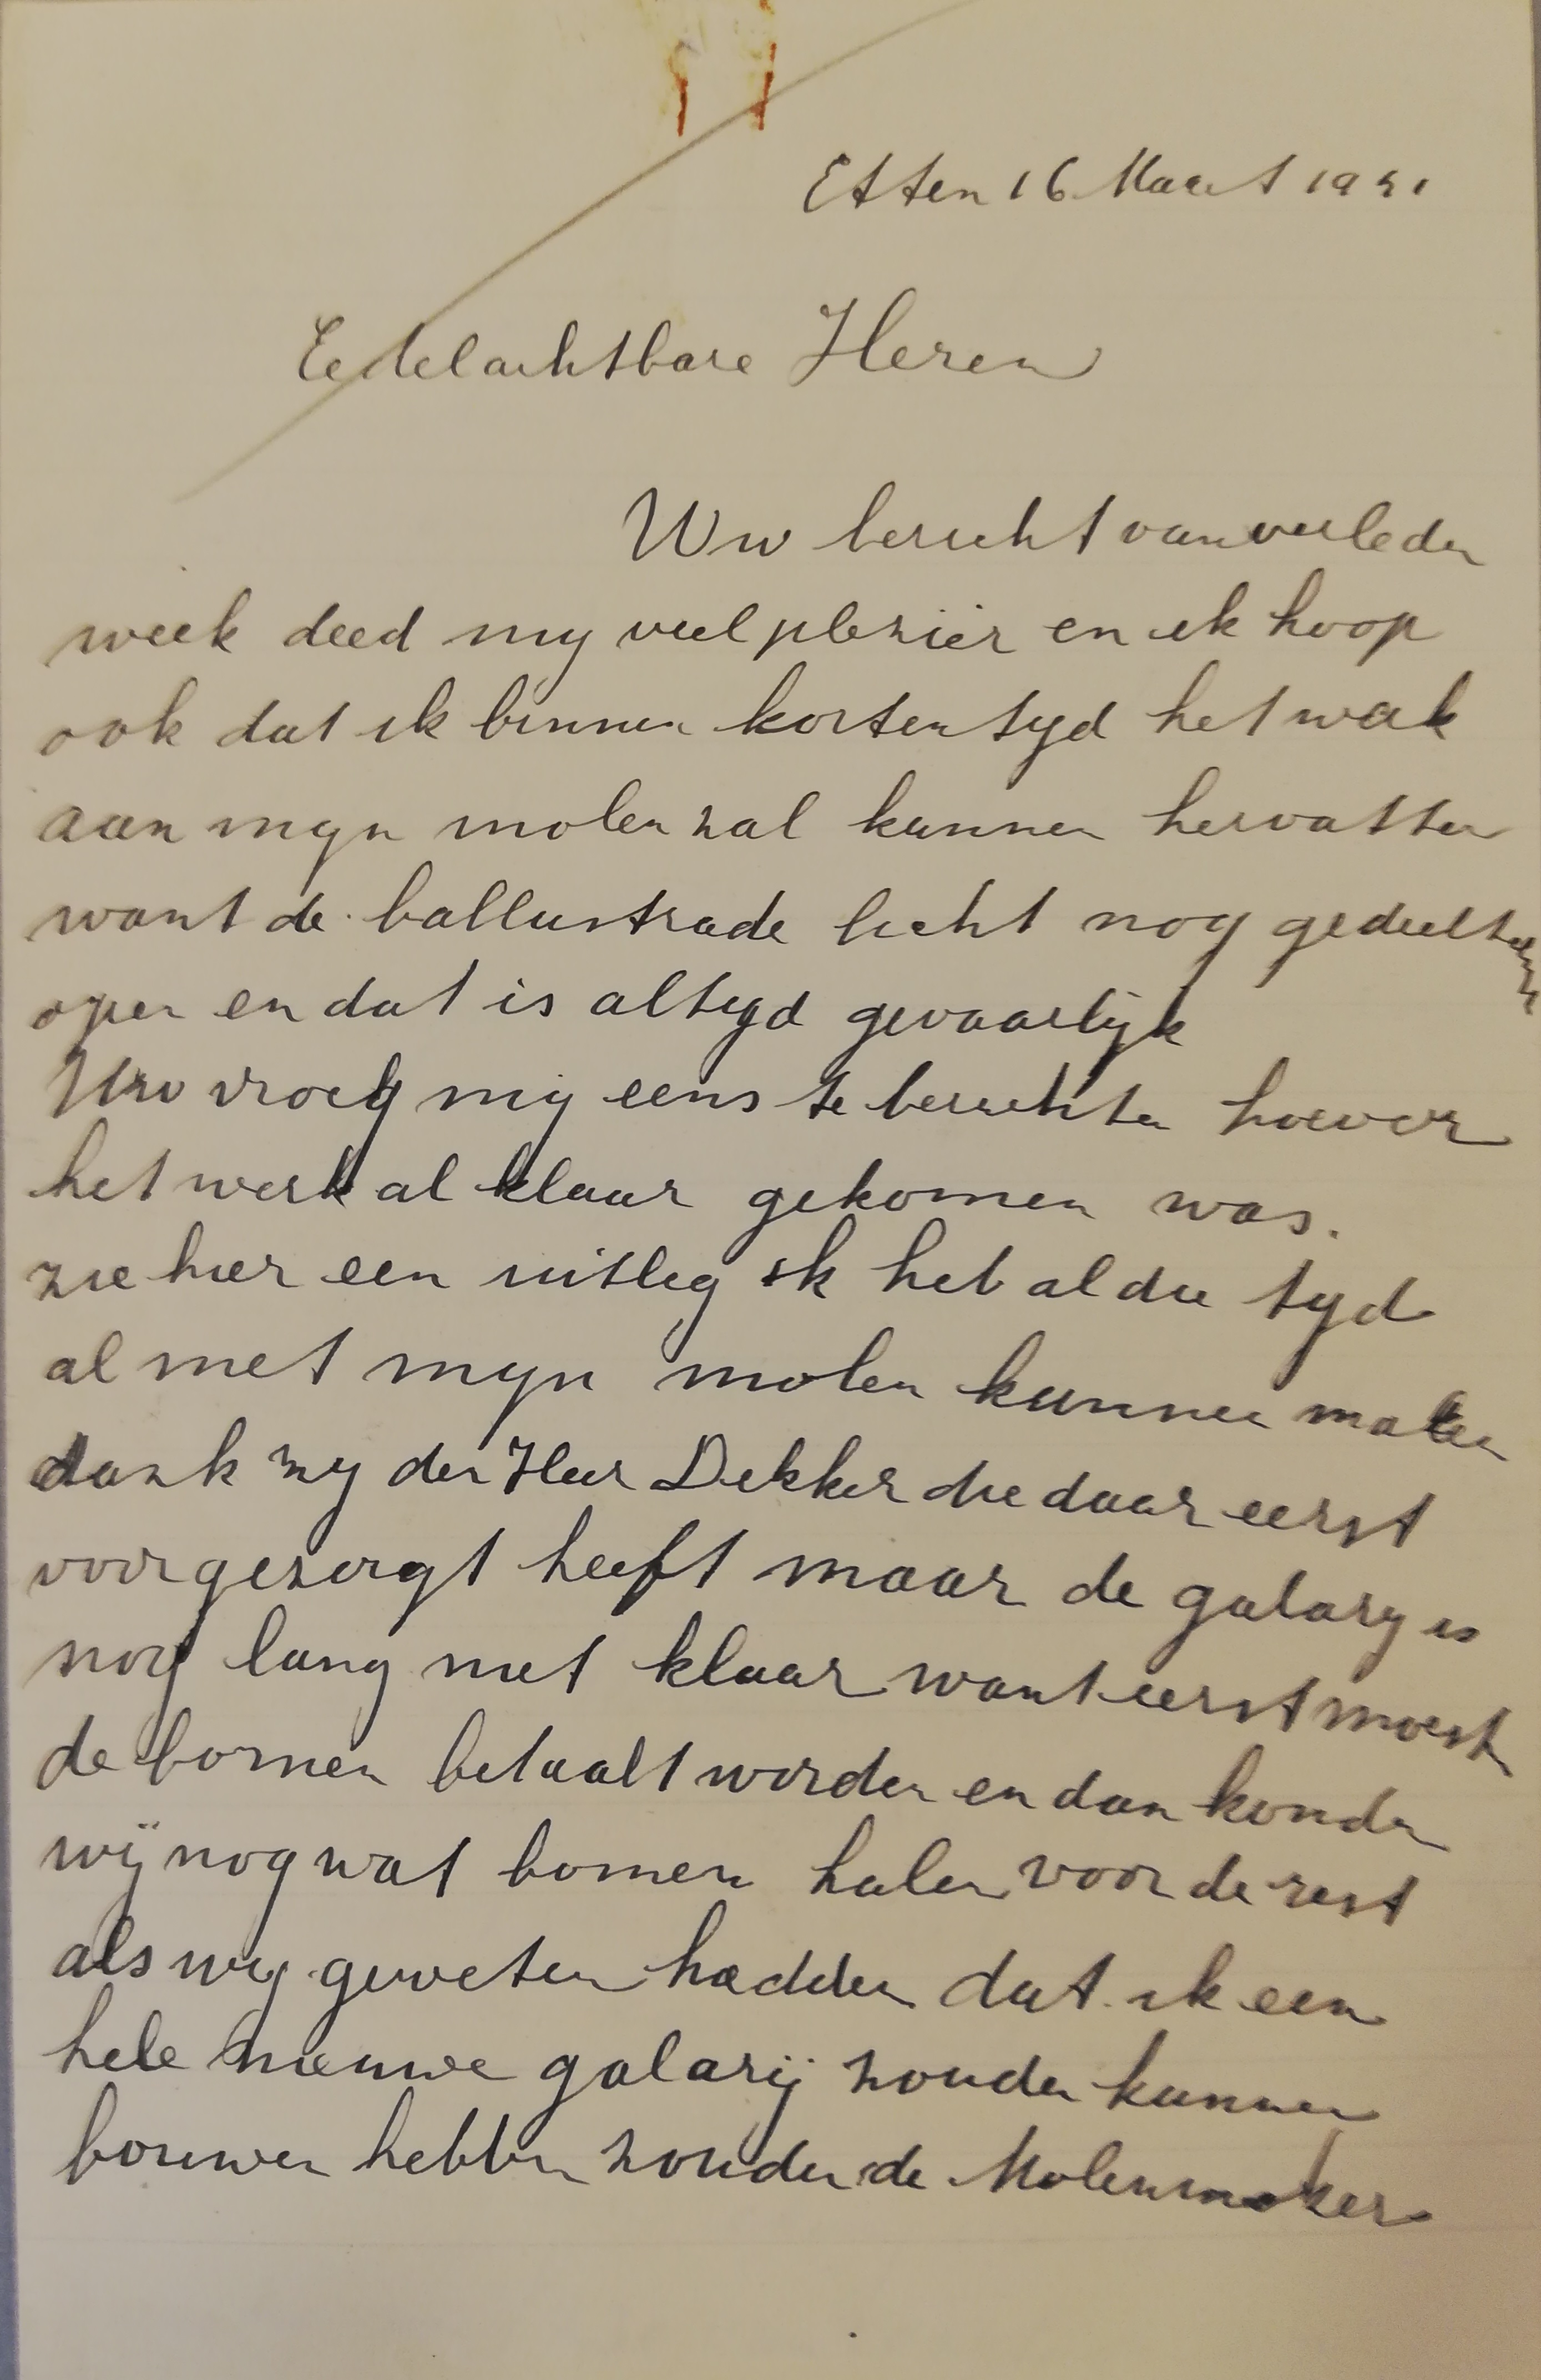 Etten 16 Maart 1951
Eedelachtbare Heren
Uw bericht van verleden
week deed my veel plezier en ik hoop
ook dat ik binnen korten tyd het werk
aan myn molen zal kunnen hervatten
want de ballustrade licht nog gedeeltens
open en dat is altyd gevaarlijk
Uw vroeg mij eens te berichten hoever
het werk al klaar gekomen was.
zie hier een uitleg ik heb al die tyd
al met myn molen kunnen malen
dank zy den Heer Dekker die daar eerst
voor gezorgt heeft maar de galary is
nog lang niet klaar want eerst moesten
de bomen betaalt worden en dan konden
wij nog wat bomen halen voor de rest
als wy geweten hadden dat ik een
hele nieuwe galarij zouden kunnen
bouwen hebben zouden de Molenmaker